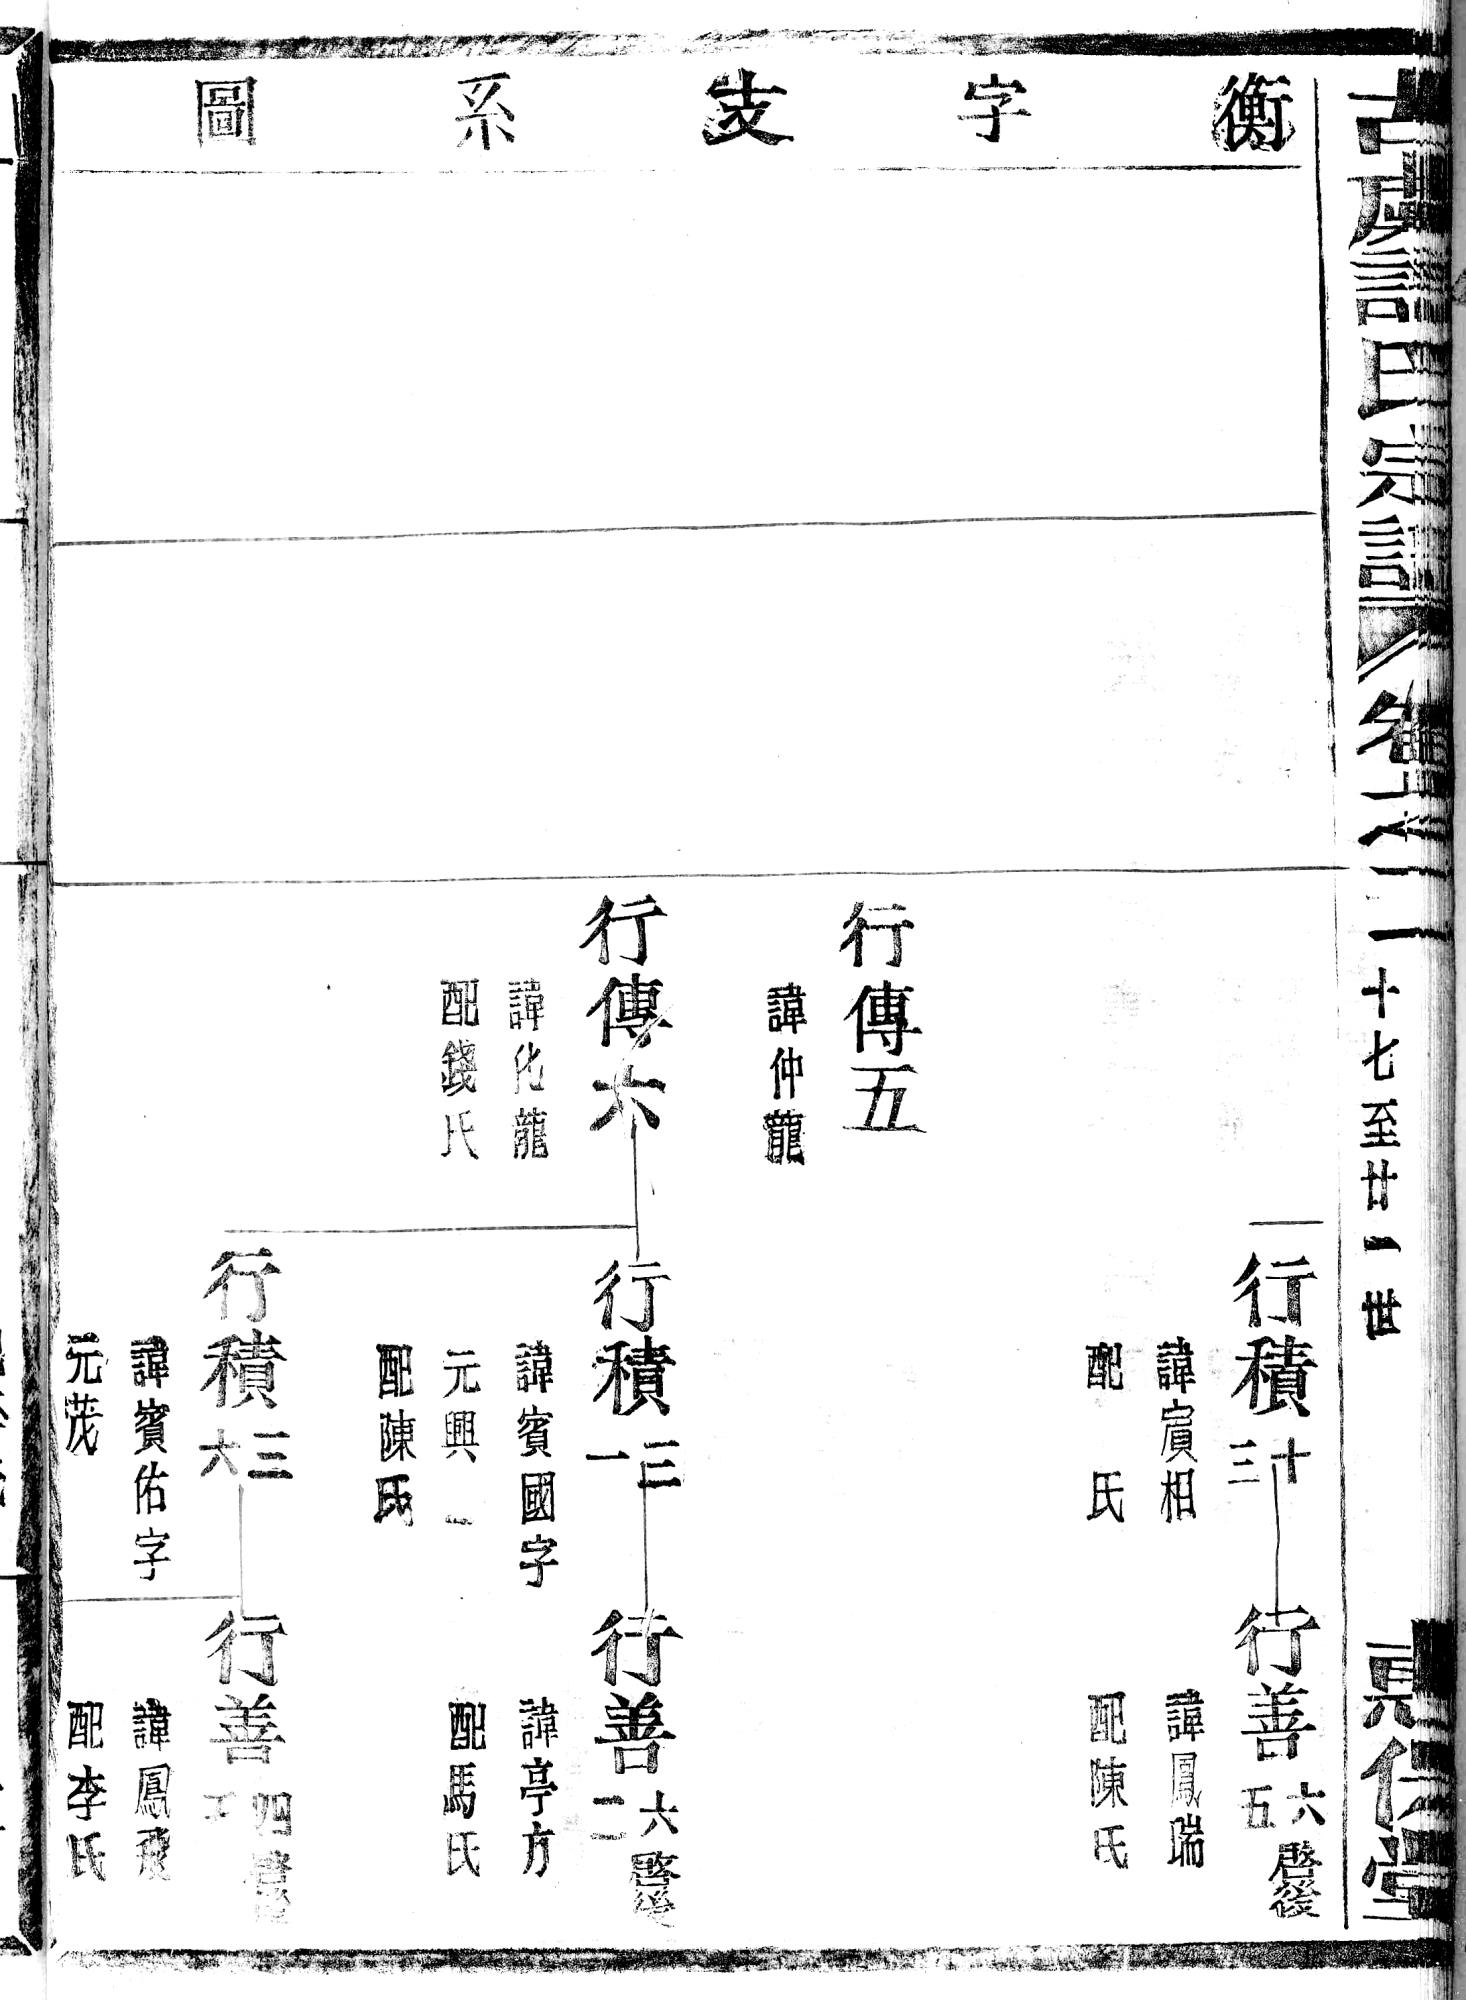 衡字支系圖
古虞許氏宗譜
卷之二
十七至廿一世
行積十三
諱賔相
配 氏
行善六五啓後
諱鳳瑞
配陳氏
行傳五
諱仲龍
行傳六
諱化龍
配錢氏
行積三一
諱賓國字
元興一
配陳氏
行善六二啓後
諱亭方
配馬氏
行積三六
諱賓佑字
元茂
行善四五啓後
諱鳳飛
配李氏